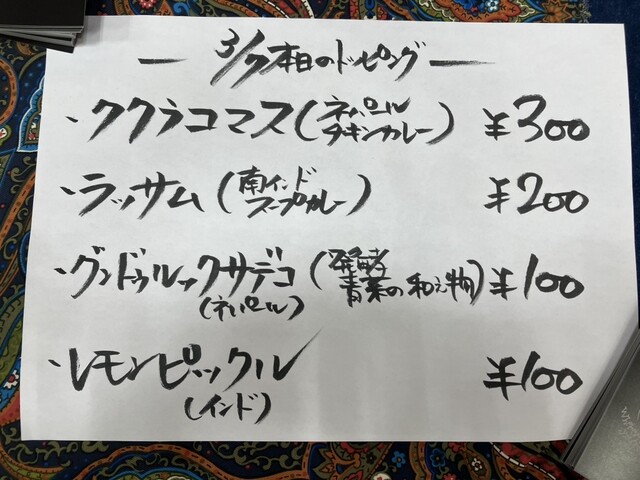 ― 3/7 本日のトッピング ―
・ククラコマス(ネパール チキンカレー) ¥300
・ラッサム(南インド スープカレー) ¥200
・グンドゥルックサデコ(発酵 青菜の和え物) ¥100
(ネパール)
・レモンピックル ¥100
(インド)